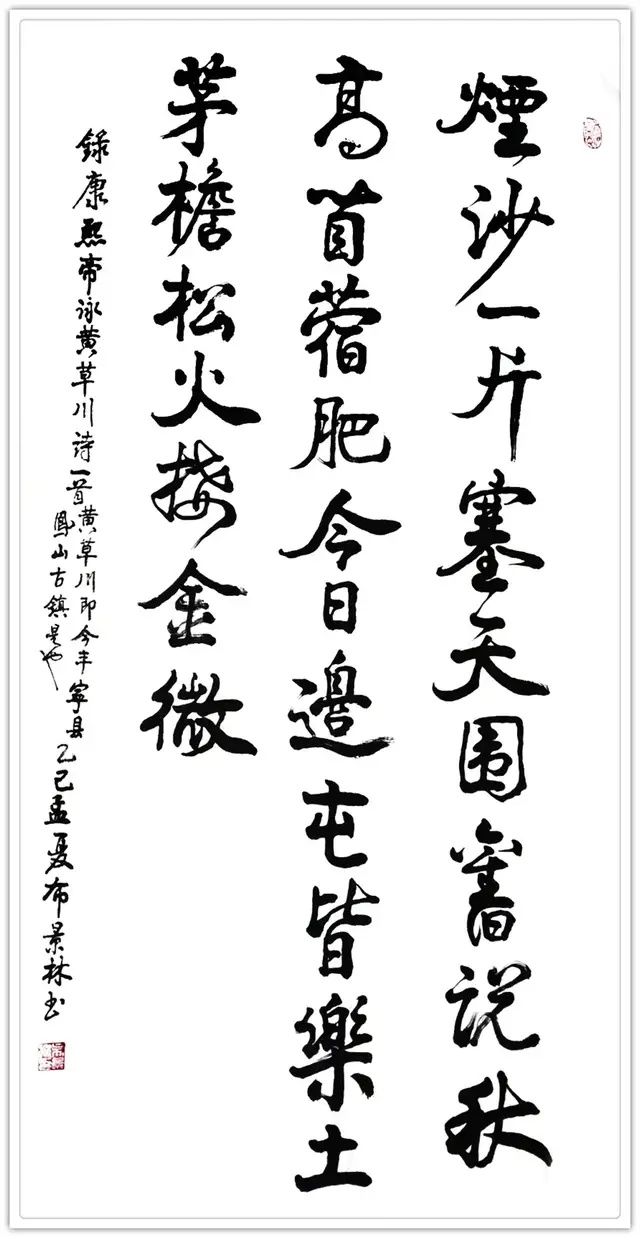 煙沙一片塞天围舊説秋
高苜蓿肥今日邊屯皆樂土
茅檐松火接金微
録康熙帝詠黄草川诗一首黄草川即今丰寧县
鳳山古鎮是也
乙巳孟夏布景林书